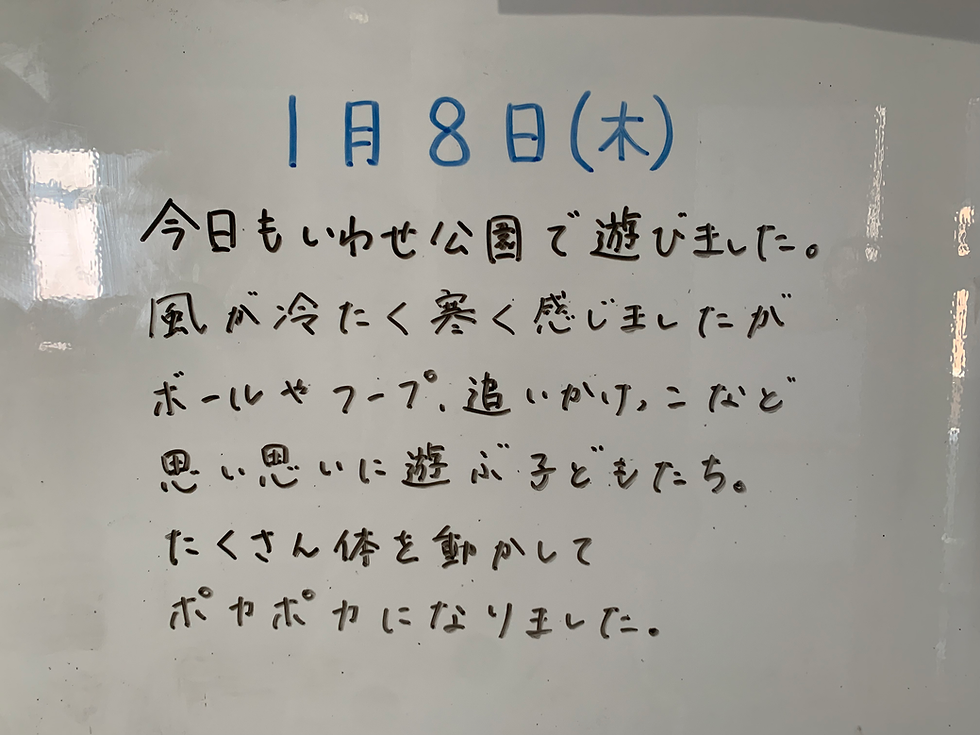 1月8日(木)
今日もいわせ公園で遊びました。
風が冷たく寒く感じましたが
ボールやフープ、追いかけっこなど
思い思いに遊ぶ子どもたち。
たくさん体を動かして
ポカポカになりました。